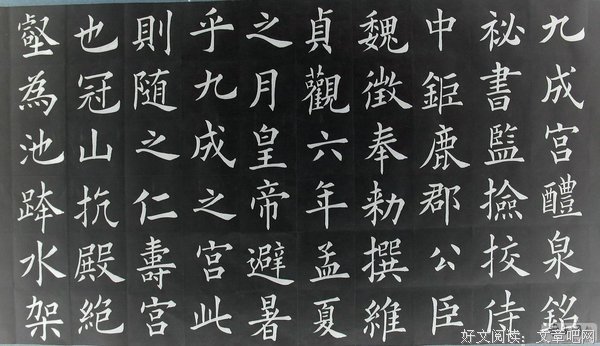 九成宮醴泉銘
祕書監撿挍侍
中鉅鹿郡公臣
魏徵奉勑撰維
貞觀六年孟夏
之月皇帝避暑
乎九成之宮此
則随之仁壽宮
也冠山抗殿絶
壑為池跨水架
好文阅读：文章吧网